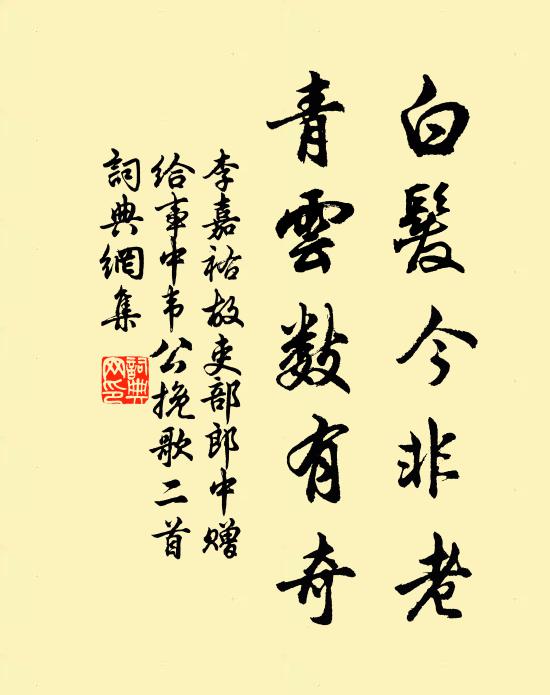 白髮今非老
青雲數有奇
李嘉祐故吏部郎中贈
給事中韦公挽歌二首
詞典網集
詞典網印